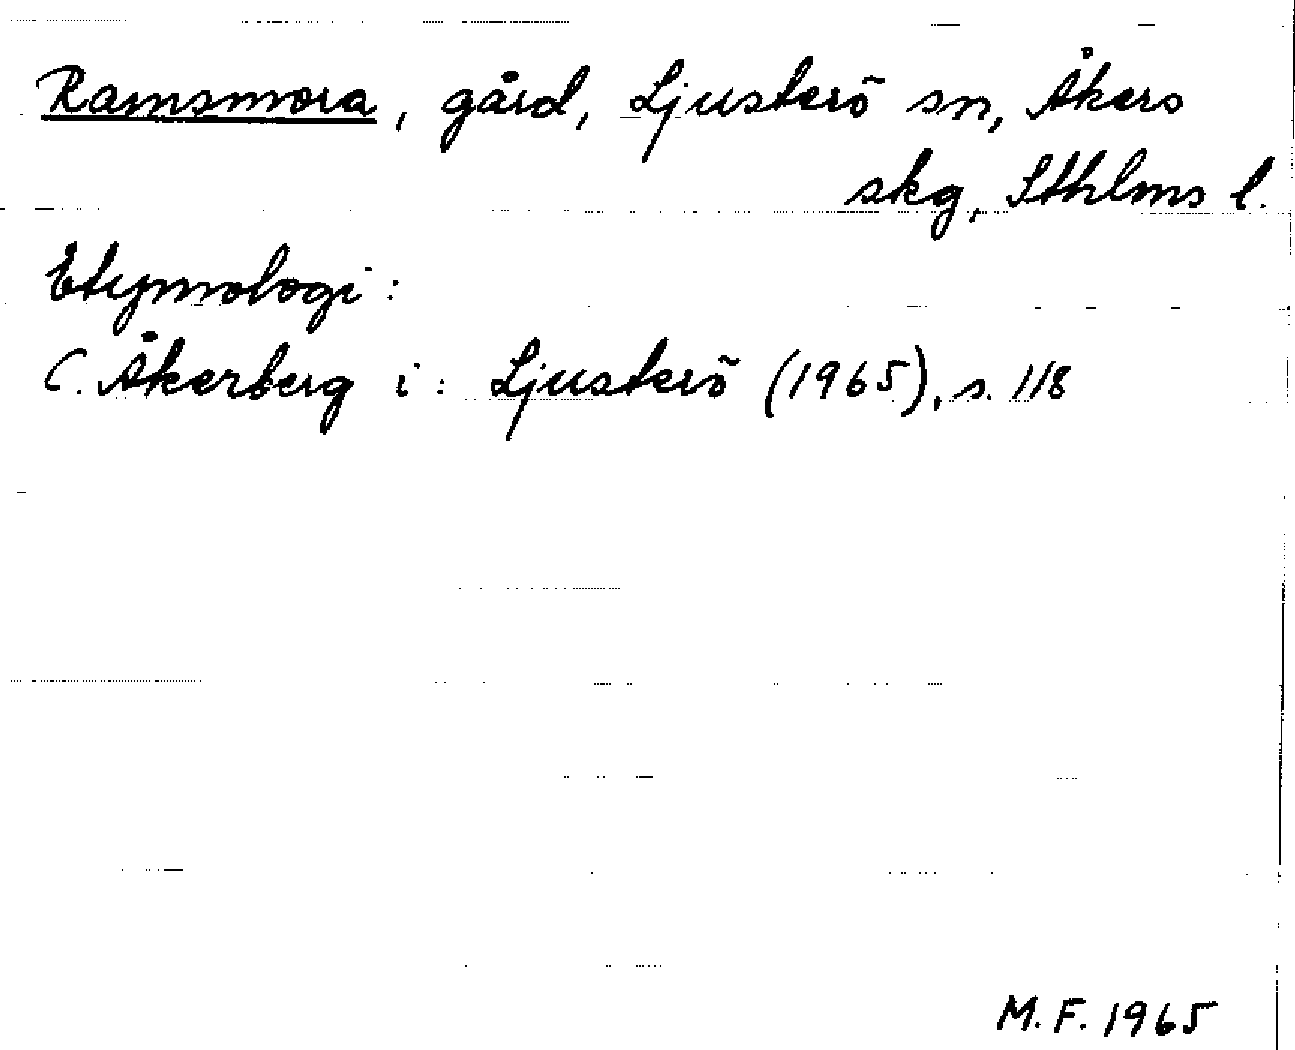 Ramsmora, gård, Ljusterö sn, Åkers
skg, Sthlms l.
Etymologi:
C. Åkerberg i: Ljusterö (1965), s. 118
M. F. 1965